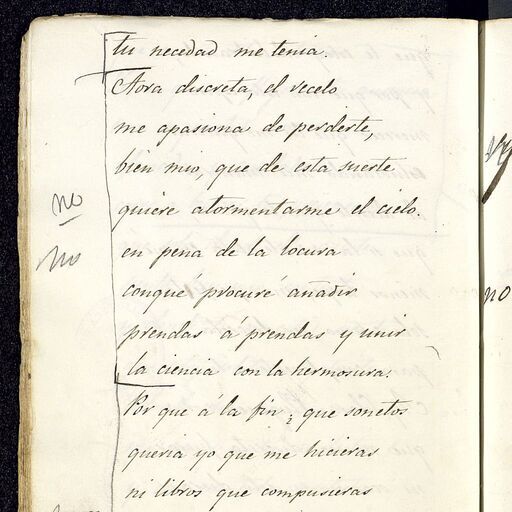 tu necedad me tenia.
Aora discreta, el recelo
me apasiona de perderte,
bien mio, que de esta suerte
quiere atormentarme el cielo.
no
en pena de la locura
no
conqué procuré añadir
no
prendas á prendas y unir
la ciencia con la hermosura.
Por que á la fin, que sonetos
queria yo que me hicieras
ni libros que compusieras